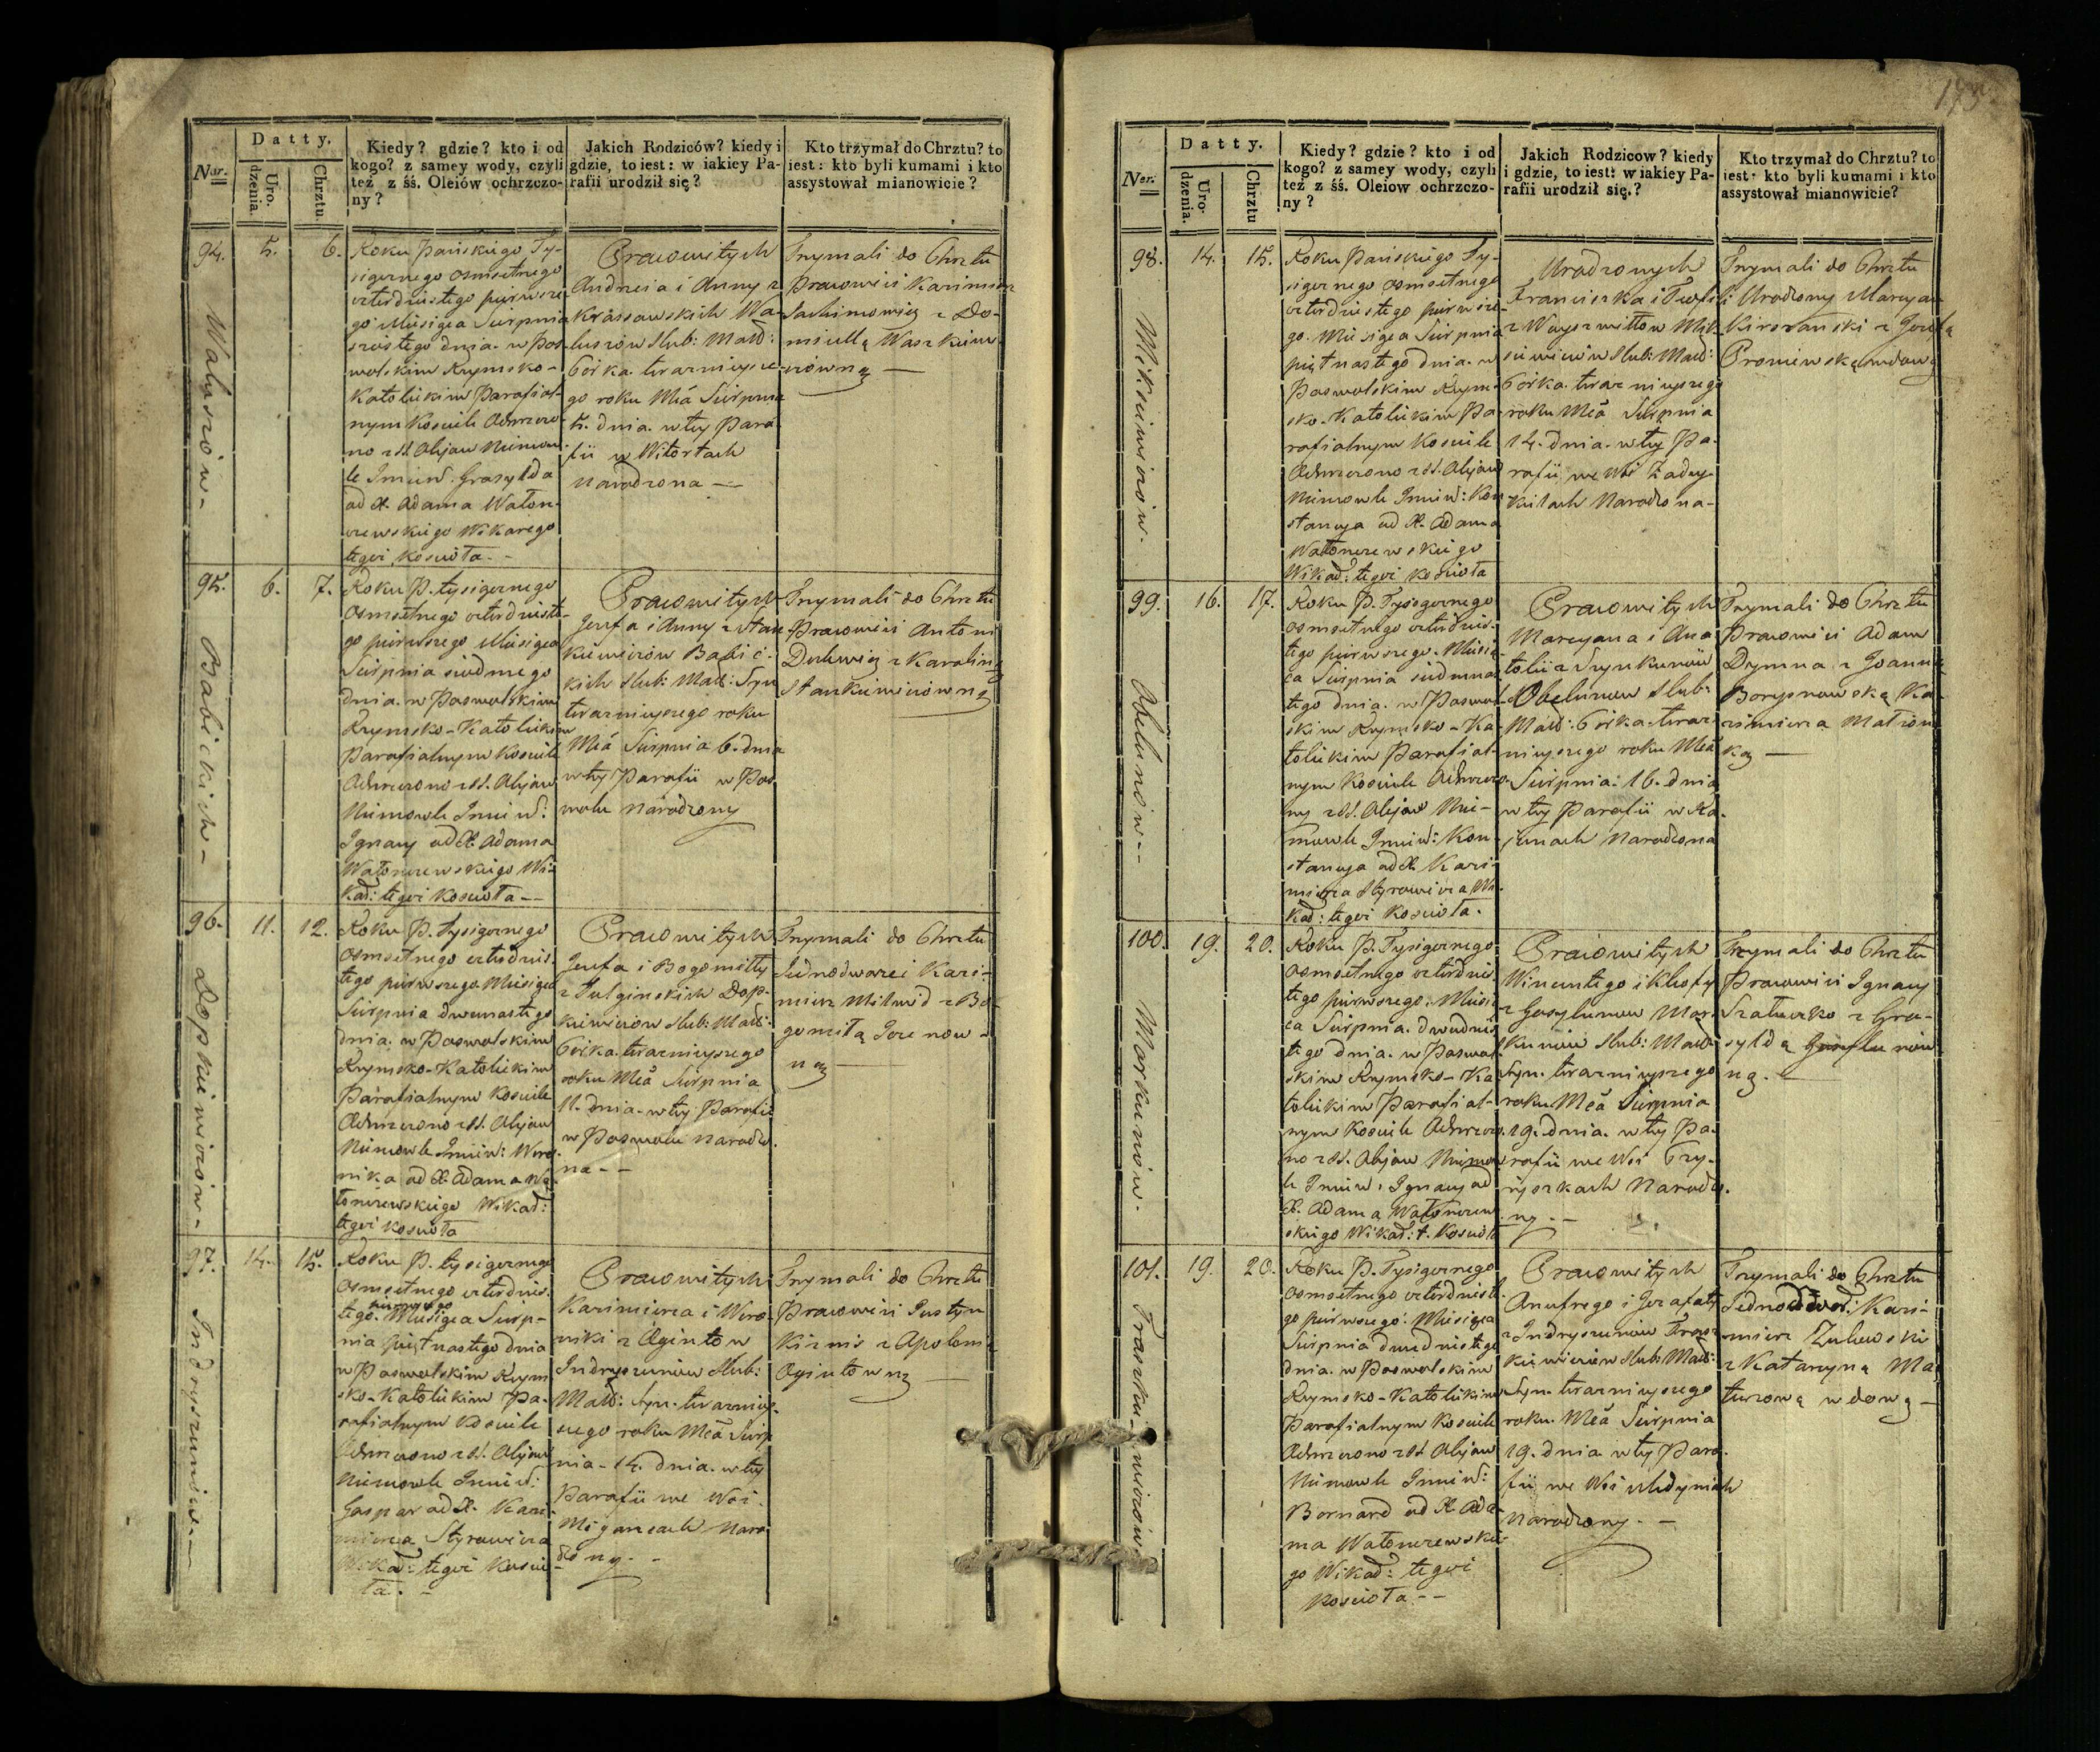 173.
Datty.
Nar.
Uro-
dzenia.
Chrztu.
Kiedy? gdzie? kto i od
kogo? z samey wody, czyli
też z śś. Oleiów ochrzczo-
ny?
Jakich Rodziców? kiedy i
gdzie, to iest: w iakiey Pa-
rafii urodził się?
Kto trzymał do Chrztu? to
iest: kto byli kumami i kto
assystował mianowicie?
94.
5.
6.
Roku Pańskiego Ty-
siącznego osmsetnego
czterdziestego pierwsze
go Miesiąca Sierpnia
szostego dnia. w Pos-
wolskim Rzymsko-
Katolickim Parafial-
nym Kosciele Ochrzczo-
no z SS. Olejow Niemow-
le Imień. Grasylda
od X. Adama Waton-
czewskiego Wikarego
tegoż Kościoła.-
Prawowitych
Andrzeia i Anny z
Krassowskich Wa-
luszów Slub: Małż:
Córka teraznieysze-
go roku Mca Sierpnia
5. dnia. w tey Para
fii w Witortach
Narodzona -
Trzymali do Chrztu
Prawowici Kazimierz
Jachimowicz z Do-
micellą Waszkiew-
iczówną -
Waluszów-
95.
6.
7.
Roku P. tysiącznego
Osmsetnego czterdzieste-
go pierwszego Miesiąca
Sierpnia siodmego
dnia. w Poswolskim
Rzymsko-Katolickim
Parafialnym Kosciele
Ochrzczono z SS. Olejow
Niemowle Imień:
Ignacy od X. Adama
Watonczewskiego Wi-
kad: tegoż Kosciola--
Prawowitych
Jozefa i Anny z Stan
kiewiczów Babic-
kich Slub: Małż: Syn
teraznieyszego roku
Mca Sierpnia 6. dnia
w tey Parafii w Pos
wolu Narodzony
Trzymali do Chrztu
Prawowici Antoni
Duchowicz z Karoliną
Stankiewiczówną
Babickich-
96.
11.
12.
Roku P. Tysiącznego
Osmsetnego czterdzies-
tego pierwszego Miesiąca
Sierpnia dwunastego
dnia. w Poswolskim
Rzymsko-Katolickim
Parafialnym Kosciele
Ochrzczono z SS. Olejow
Niemowle Imień: Wero
nika od X. Adama Wa
tonczewskiego Wikad:
tegoż Kosciola
Prawowitych
Jozefa i Bogomilly
z Julginskich Dop-
kiewiczów Slub: Małż:
Córka teraznieyszego
roku Mca Sierpnia
11. dnia. w tey Parafii
w Poswolu Narodzo.
na--
Trzymali do Chrztu
Jednodworci Kazi-
mierz Milwid z Bo-
gomiłą
ną -
Dopkiewiczów-
97.
14.
15.
Roku P. tysiącznego
Osmsetnego czterdzies.
tego pierwszego Miesiąca Sierp-
nia piętnastego dnia
w Poswolskim Rzym
sko-Katolickim Pa-
rafialnym Kosciele
Ochrzczono z SS. Olejow
Niemowle Imień:
Gaspar od X. Kazi-
mierza Styrowicza
Wikad: tegoż Koscio
ła.-
Prawowitych
Kazimierza i Wero
niki z Ogintow
Indryszunów Slub:
Małż: Syn. teraznieys-
szego roku Mca Sierp
nia - 14. dnia. w tey
Parafii we Wsi.
Migancach Naro
dzony.-
Trzymali do Chrztu
Prawowici Justyn
Kirnis z Apolonią
Ogintowną -
Indryszunów-
Datty.
Ner.
Uro-
dzenia.
Chrztu
Kiedy? gdzie? kto i od
kogo? z samey wody, czyli
też z śś. Oleiow ochrzczo-
ny?
Jakich Rodzicow? kiedy
i gdzie, to iest: w iakiey Pa-
rafii urodził się.?
Kto trzymał do Chrztu? to
iest: kto byli kumami i kto
assystował mianowicie?
98.
14.
15.
Roku Pańskiego Ty-
siącznego osmsetnego
czterdziestego pierwsze-
go. Miesiąca Sierpnia
piętnastego dnia. w
Poswolskim Rzym-
sko-Katolickim Pa
rafialnym Kosciele
Ochrzczono z SS. Olejow
Niemowle Imień: Kon
stancya od X. Adama
Watonczewskiego
Wikad: tegoż Kosciola
Urodzonych
Franciszka i Teofi
z Woyszwiłłow Mik-
siewiczów Slub: Małż:
Córka. teraznieyszego
roku Mca Sierpnia
14. dnia. w tey Pa-
rafii we Wsi Zadey-
kiciach Narodzona-
Trzymali do Chrztu
Urodzony Marcyan
Kirszanski z Jozefą
Proniewską wdową
Miksiewiczów.
99.
16.
17.
Roku P. Tysiącznego
osmsetnego czterdzies-
tego pierwszego. Miesią
ca Sierpnia siedmnas
tego dnia. w Poswol-
skim Rzymsko-Ka-
tolickim Parafial-
nym Kosciele Ochrzczo-
ny z SS. Olejow Nie-
mowle Imień: Kon-
stancya od X. Kazi-
mierza Styrowicza Wi-
kad: tegoż Kosciola.
Prawowitych
Marcyana i Ana
tolii z Szynkunow
Obelunow Slub:
Małż: Córka. teraz-
nieyszego roku Mca
Sierpnia: 16. dnia
w tey Parafii w Ka-
junach Narodzona
Trzymali do Chrztu
Prawowici Adam
Dymna z Joanną
Borysowską Ka-
zimierza Małżon
ką -
Obelunów--
100.
19.
20.
Roku P. Tysiącznego
Osmsetnego czterdzies
tego pierwszego. Miesią
ca Sierpnia. dwudzies
tego dnia. w Poswol-
skim Rzymsko-Ka
tolickim Parafial-
nym Kosciele Ochrzczo.
no z SS. Olejow Niemow
le Imień: Ignacy od
X. Adama Watonczew
skiego Wikad: t. Kosciola
Prawowitych
Wincentego i Kleofy
z Gasylunow Mar-
kunów Slub: Małż:
Syn. teraznieyszego
roku Mca Sierpnia
19. dnia. w tey Pa-
rafii we Wsi
Narodzo.
ny.-
Trzymali do Chrztu
Prawowici Ignacy
z Gra-
syldą
ną.-
Markunów.
101.
19.
20.
Roku P. Tysiącznego
Osmsetnego czterdzieste
go pierwszego. Miesiąca
Sierpnia dwudziestego
dnia. w Poswolskim
Rzymsko-Katolickim
Parafialnym Kosciele
Ochrzczono z SS Olejow
Niemowle Imień:
Bernard od X. Ada-
ma Watonczewskie-
go Wikad: tegoż
Kosciola--
Prawowitych
Anufrego i Jozafaty
z Indryszunow Frasz-
kiewiczów Slub: Małż:
Syn. teraznieyszego
roku. Mca Sierpnia
19. dnia w tey Para-
fii we Wsi
Narodzony.-
Trzymali do Chrztu
Jednodwor: Kazi-
mierz Zulewski
z Katarzyną Ma
tuzową wdową-
Fraszkiewiczów